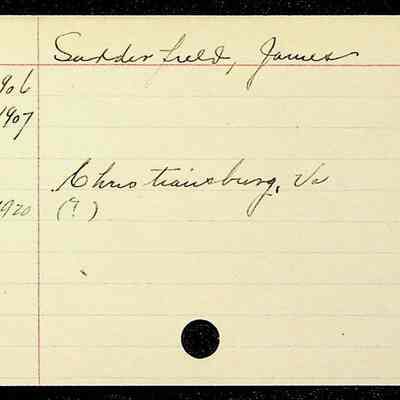 Sudderfield, James
906
1907
Christiansburg, Va
1920 (?)